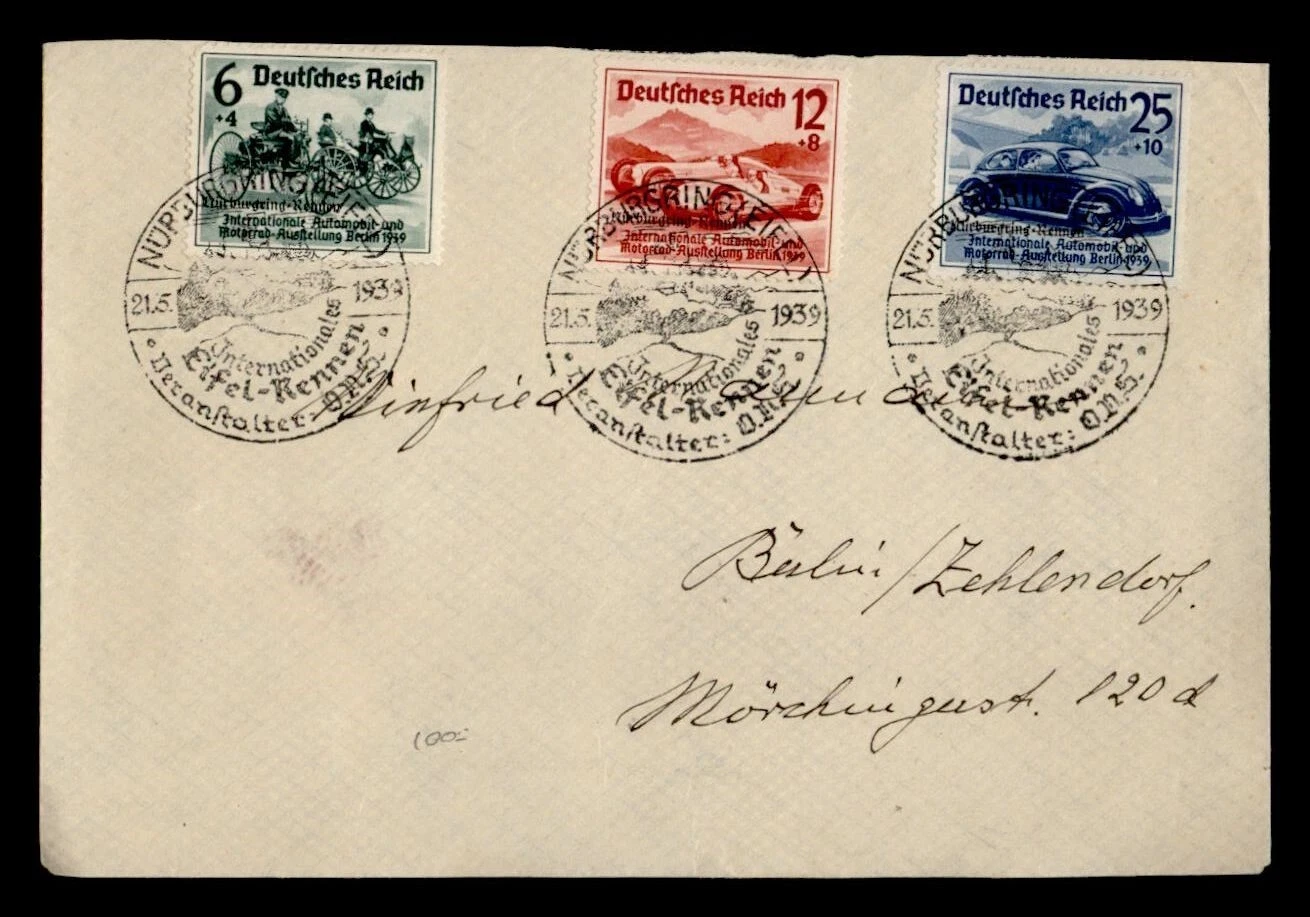 6 Deutsches Reich
+4
Nürburgring-Rennen
Internationale Automobil- und
Motorrad-Ausstellung Berlin 1939
Deutsches Reich 12
+8
Nürburgring-Rennen
Internationale Automobil- und
Motorrad-Ausstellung Berlin 1939
Deutsches Reich 25
+10
Nürburgring-Rennen
Internationale Automobil- und
Motorrad-Ausstellung Berlin 1939
NÜRBURGRING (EIFEL)
21.5. 1939
Internationales
Eifel-Rennen
Veranstalter: O.N.S.
NÜRBURGRING (EIFEL)
21.5. 1939
Internationales
Eifel-Rennen
Veranstalter: O.N.S.
NÜRBURGRING (EIFEL)
21.5. 1939
Internationales
Eifel-Rennen
Veranstalter: O.N.S.
Winfried
Berlin/Zehlendorf.
Mörchingerst. 120 d
100=